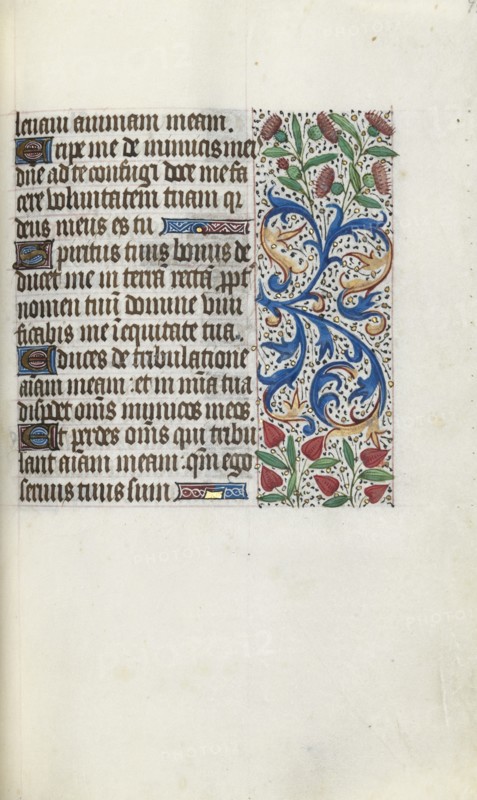 leuaui animam meam.
Eripe me de inimicis meis
dñe ad te confugi doce me fa
cere voluntatem tuam qr
deus meus es tu
Spiritus tuus bonus de
ducet me in terrā rectā ppt
nomen tuū domine viui
ficabis me ī equitate tua.
Educes de tribulatione
aīam meam : et in mīa tua
disperdes oīns inimicos meos.
Et perdes oīns qui tribu
lant aīam meam : qm̄ ego
seruus tuus sum